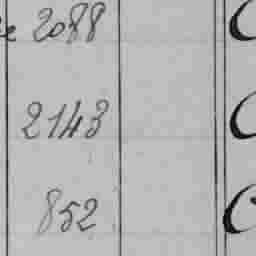 2088
2143
852